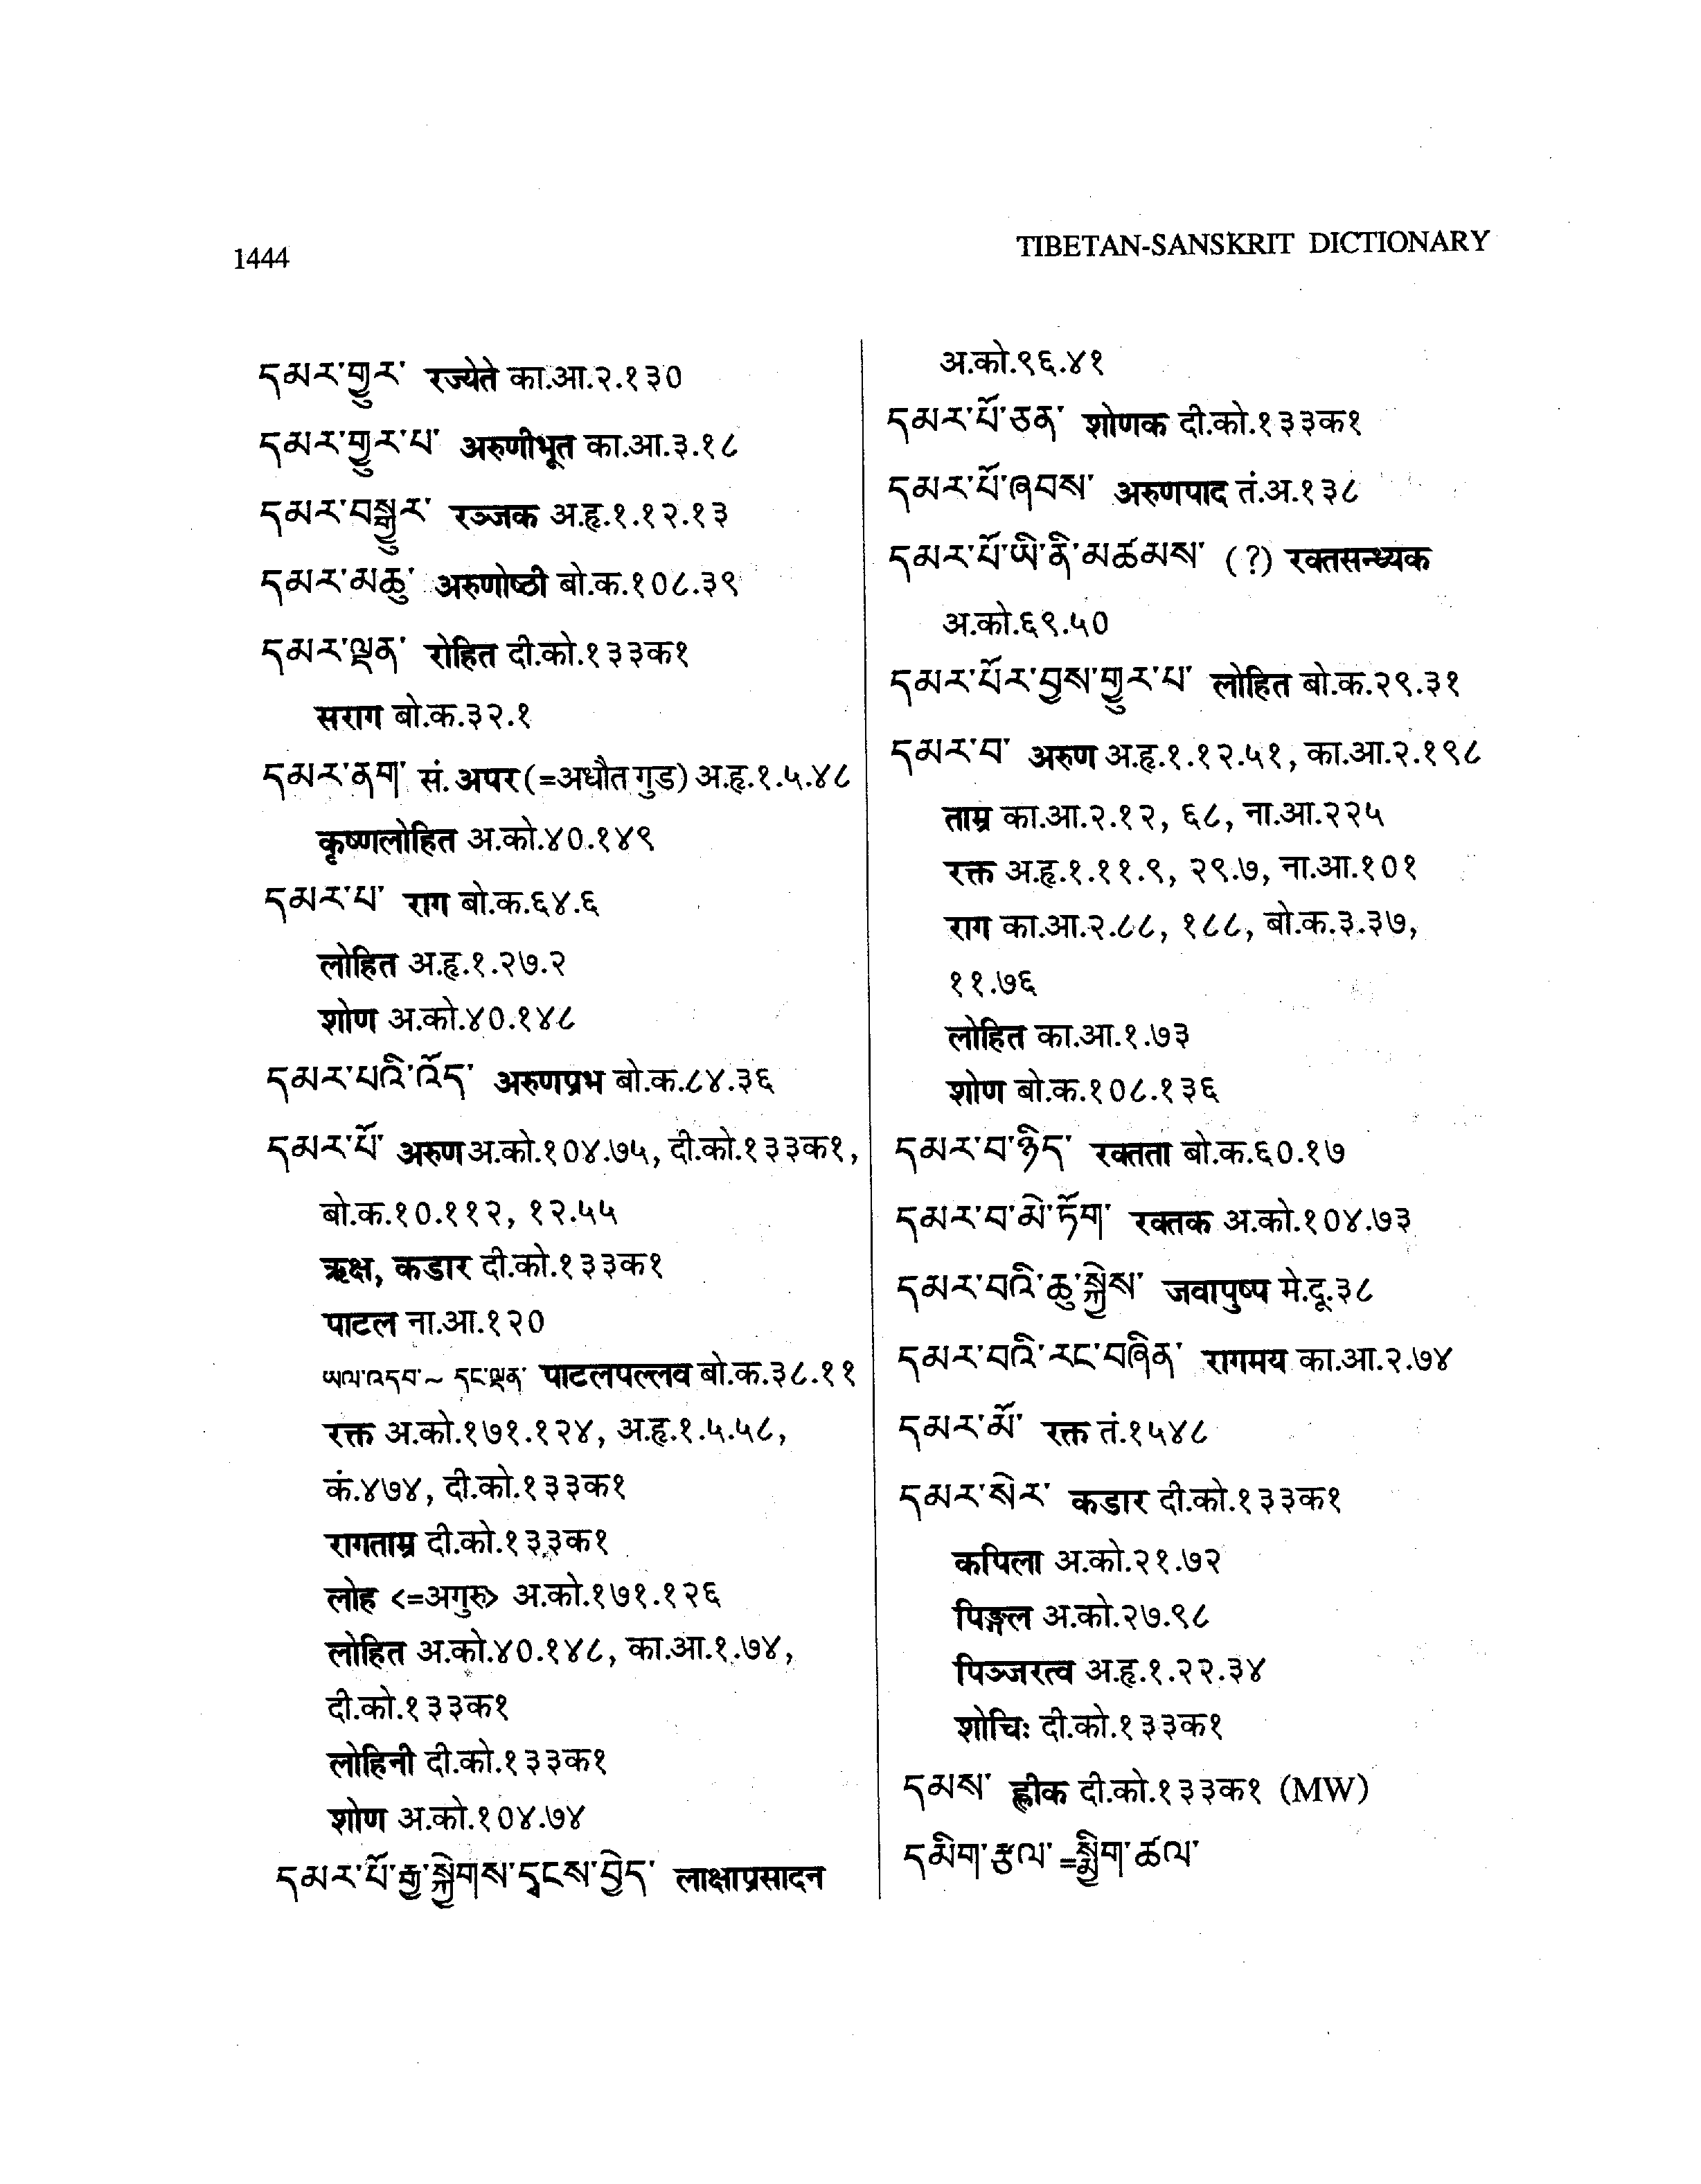 1444
TIBETAN-SANSKRIT DICTIONARY
དམར་གྱུར་ रज्येते का.आ.२.१३०
དམར་གྱུར་པ་ अरुणीभूत का.आ.३.१८
དམར་བསྒྱུར་ रञ्जक अ.हृ.१.१२.१३
དམར་མཆུ་ अरुणोष्ठी बो.क.१०८.३९
དམར་ལྡན་ रोहित दी.को.१३३क१
सराग बो.क.३२.१
དམར་ནག་ सं. अपर (=अधौत गुड) अ.हृ.१.५.४८
कृष्णलोहित अ.को.४०.१४९
དམར་པ་ राग बो.क.६४.६
लोहित अ.हृ.१.२७.२
शोण अ.को.४०.१४८
དམར་པའི་འོད་ अरुणप्रभ बो.क.८४.३६
དམར་པོ་ अरुण अ.को.१०४.७५, दी.को.१३३क१,
बो.क.१०.११२, १२.५५
ऋक्ष, कडार दी.को.१३३क१
पाटल ना.आ.१२०
ཡལ་འདབ་~ དང་ལྡན་ पाटलपल्लव बो.क.३८.११
रक्त अ.को.१७१.१२४, अ.हृ.१.५.५८,
कं.४७४, दी.को.१३३क१
रागताम्र दी.को.१३३क१
लोह <=अगुरु> अ.को.१७१.१२६
लोहित अ.को.४०.१४८, का.आ.१.७४,
दी.को.१३३क१
लोहिनी दी.को.१३३क१
शोण अ.को.१०४.७४
དམར་པོ་རྒྱ་སྐྱེགས་དྭངས་བྱེད་ लाक्षाप्रसादन
अ.को.९६.४१
དམར་པོ་ཅན་ शोणक दी.को.१३३क१
དམར་པོ་ཞབས་ अरुणपाद तं.अ.१३८
དམར་པོ་ཡི་ནི་མཚམས་ (?) रक्तसन्ध्यक
अ.को.६९.५०
དམར་པོར་བྱས་གྱུར་པ་ लोहित बो.क.२९.३१
དམར་བ་ अरुण अ.हृ.१.१२.५१, का.आ.२.१९८
ताम्र का.आ.२.१२, ६८, ना.आ.२२५
रक्त अ.हृ.१.११.९, २९.७, ना.आ.१०१
राग का.आ.२.८८, १८८, बो.क.३.३७,
११.७६
लोहित का.आ.१.७३
शोण बो.क.१०८.१३६
དམར་བ་ཉིད་ रक्तता बो.क.६०.१७
དམར་བ་མེ་ཏོག་ रक्तक अ.को.१०४.७३
དམར་བའི་ཆུ་སྐྱེས་ जवापुष्प मे.दू.३८
དམར་བའི་རང་བཞིན་ रागमय का.आ.२.७४
དམར་མོ་ रक्त तं.१५४८
དམར་སེར་ कडार दी.को.१३३क१
कपिला अ.को.२१.७२
पिङ्गल अ.को.२७.९८
पिञ्जरत्व अ.हृ.१.२२.३४
शोचिः दी.को.१३३क१
དམས་ ह्लीक दी.को.१३३क१ (MW)
དམིག་རྩལ་=སྨྱིག་ཚལ་